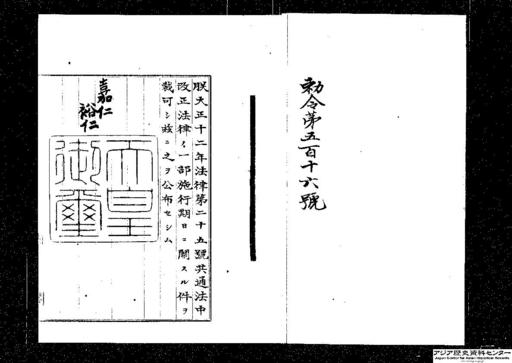 勅令第五百十六號
朕大正十二年法律第二十五號共通法中
改正法律ノ一部施行期日ニ關スル件ヲ
裁可シ茲ニ之ヲ公布セシム
嘉仁
裕仁
天皇
御璽
アジア歴史資料センター
Japan Center for Asian Historical Records